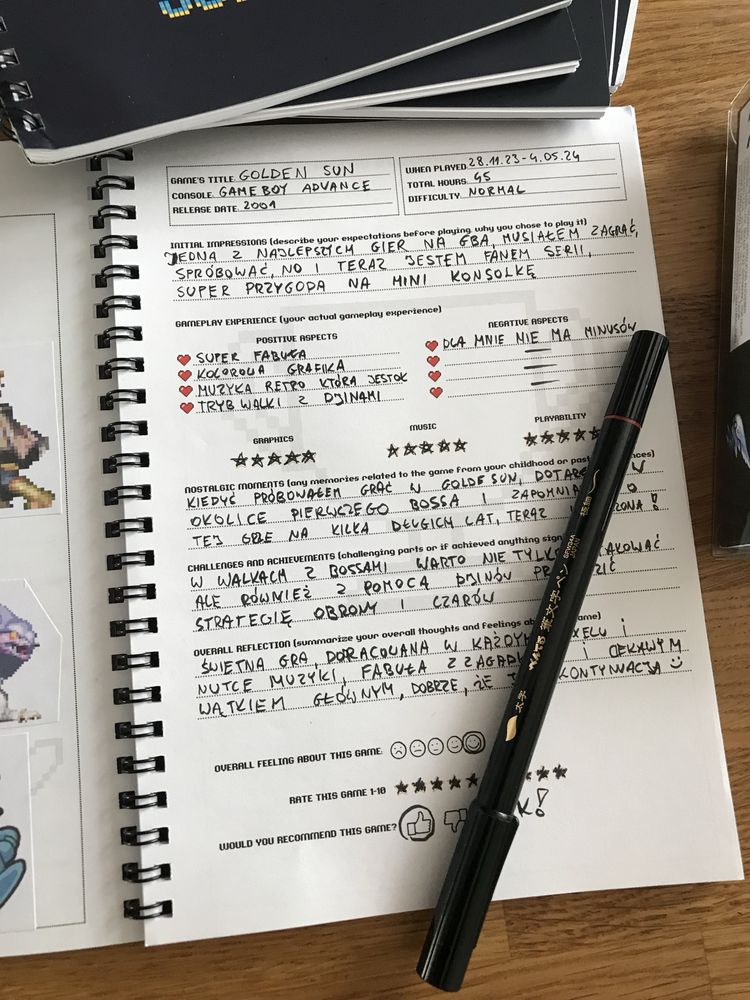 GAME'S TITLE GOLDEN SUN
CONSOLE GAMEBOY ADVANCE
RELEASE DATE 2001
WHEN PLAYED 28.11.23-4.05.24
TOTAL HOURS 45
DIFFICULTY NORMAL
INITIAL IMPRESSIONS (describe your expectations before playing, why you chose to play it)
JEDNA Z NAJLEPSZYCH GIER NA GBA, MUSIAŁEM ZAGRAĆ,
SPRÓBOWAĆ, NO I TERAZ JESTEM FANEM SERII,
SUPER PRZYGODA NA MINI KONSOLKĘ
GAMEPLAY EXPERIENCE (your actual gameplay experience)
POSITIVE ASPECTS
SUPER FABUŁA
KOLOROWA GRAFIKA
MUZYKA RETRO KTÓRA JEST OK
TRYB WALKI Z DJINAMI
NEGATIVE ASPECTS
DLA MNIE NIE MA MINUSÓW
GRAPHICS
MUSIC
PLAYABILITY
NOSTALGIC MOMENTS (any memories related to the game from your childhood or past
KIEDYŚ PRÓBOWAŁEM GRAĆ W GOLDE SUN, W
OKOLICE PIERWSZEGO BOSSA I O
TEJ GRZE NA KILKA DŁUGICH LAT, TERAZ !
CHALLENGES AND ACHIEVEMENTS (challenging parts or if achieved anything
W WALKACH Z BOSSAMI WARTO NIE TYLKO
ALE RÓWNIEŻ Z POMOCĄ DJINÓW
STRATEGIĘ OBRONY I CZARÓW
OVERALL REFLECTION (summarize your overall thoughts and feelings game)
ŚWIETNA GRA, DOPRACOWANA W KAŻDYM I
NUTCE MUZYKI, FABUŁA Z I CIEKAWYM
WĄTKIEM GŁÓWNYM, DOBRZE, ŻE KONTYNUACJA
OVERALL FEELING ABOUT THIS GAME
RATE THIS GAME 1-10
WOULD YOU RECOMMEND THIS GAME?
太字 筆文字ペン GFW34A JAPAN 極細